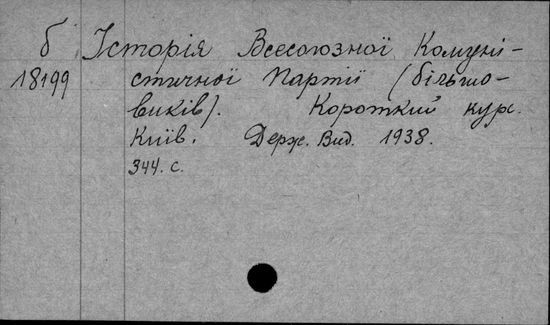 б Історія Всесоюзної Комуні-
18199 стичної Партії (більшо-
виків). Короткий курс.
Київ. Держ. Вид. 1938.
344. с.